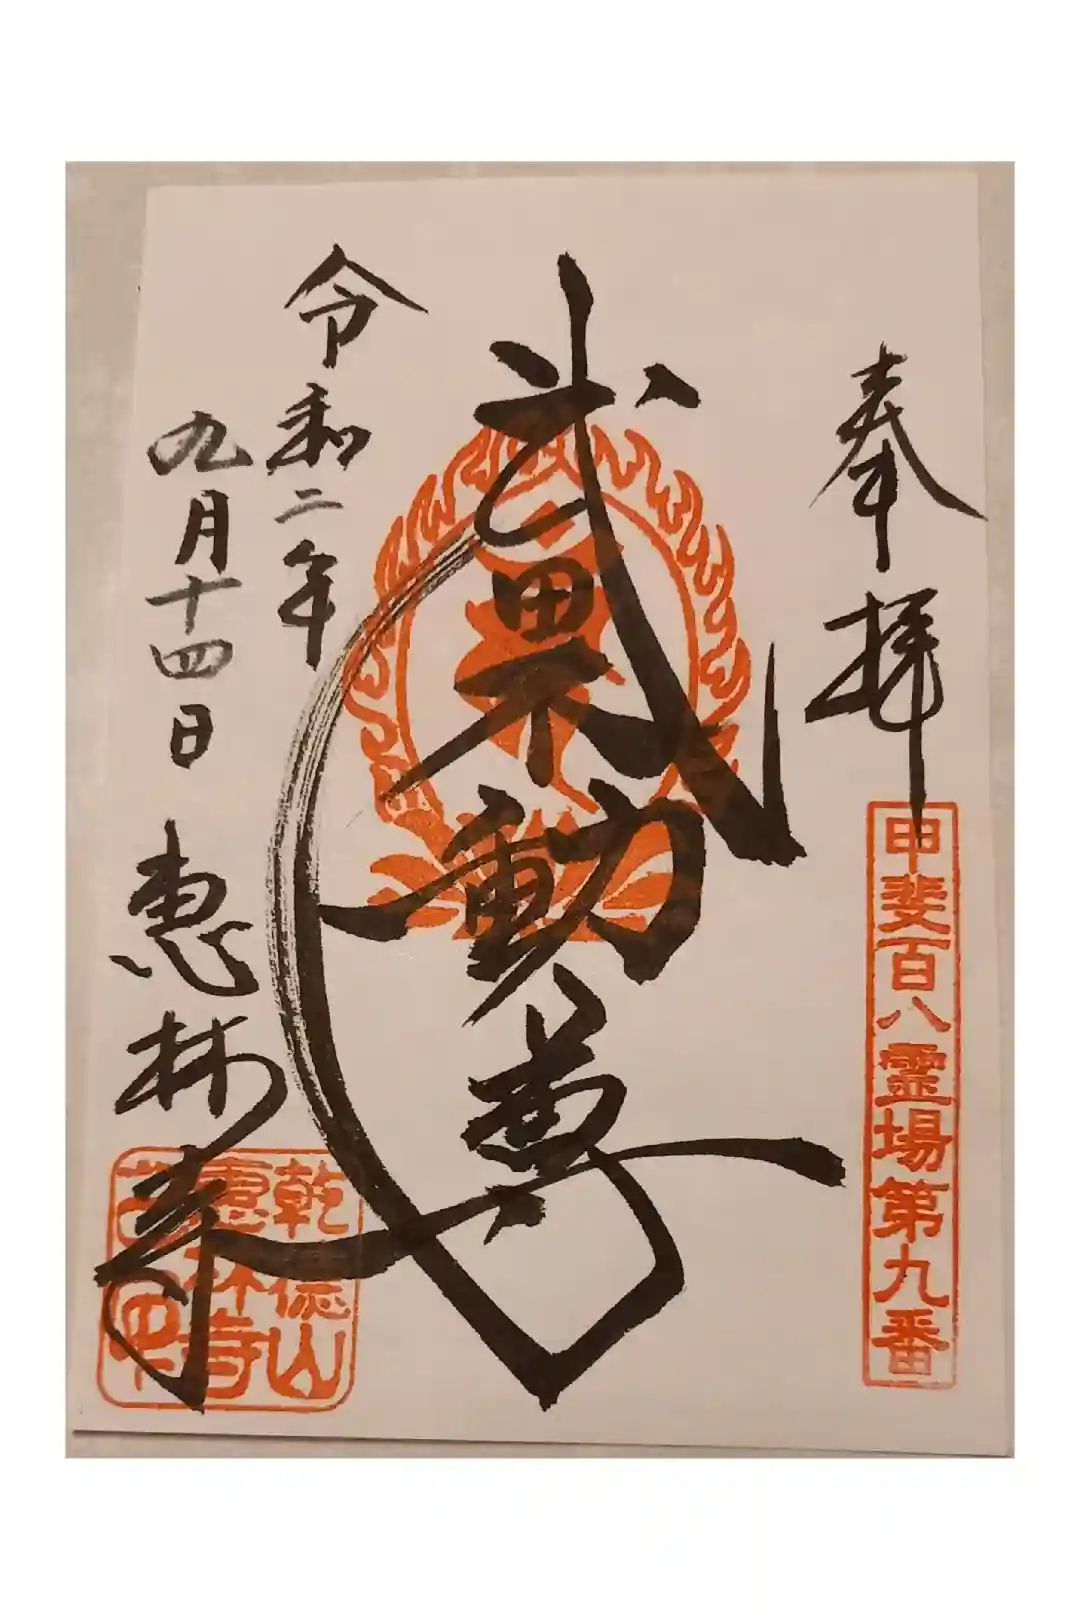 奉拝
甲斐百八霊場第九番
武田不動尊
令和二年
九月十四日
恵林寺
乾徳山
恵林寺